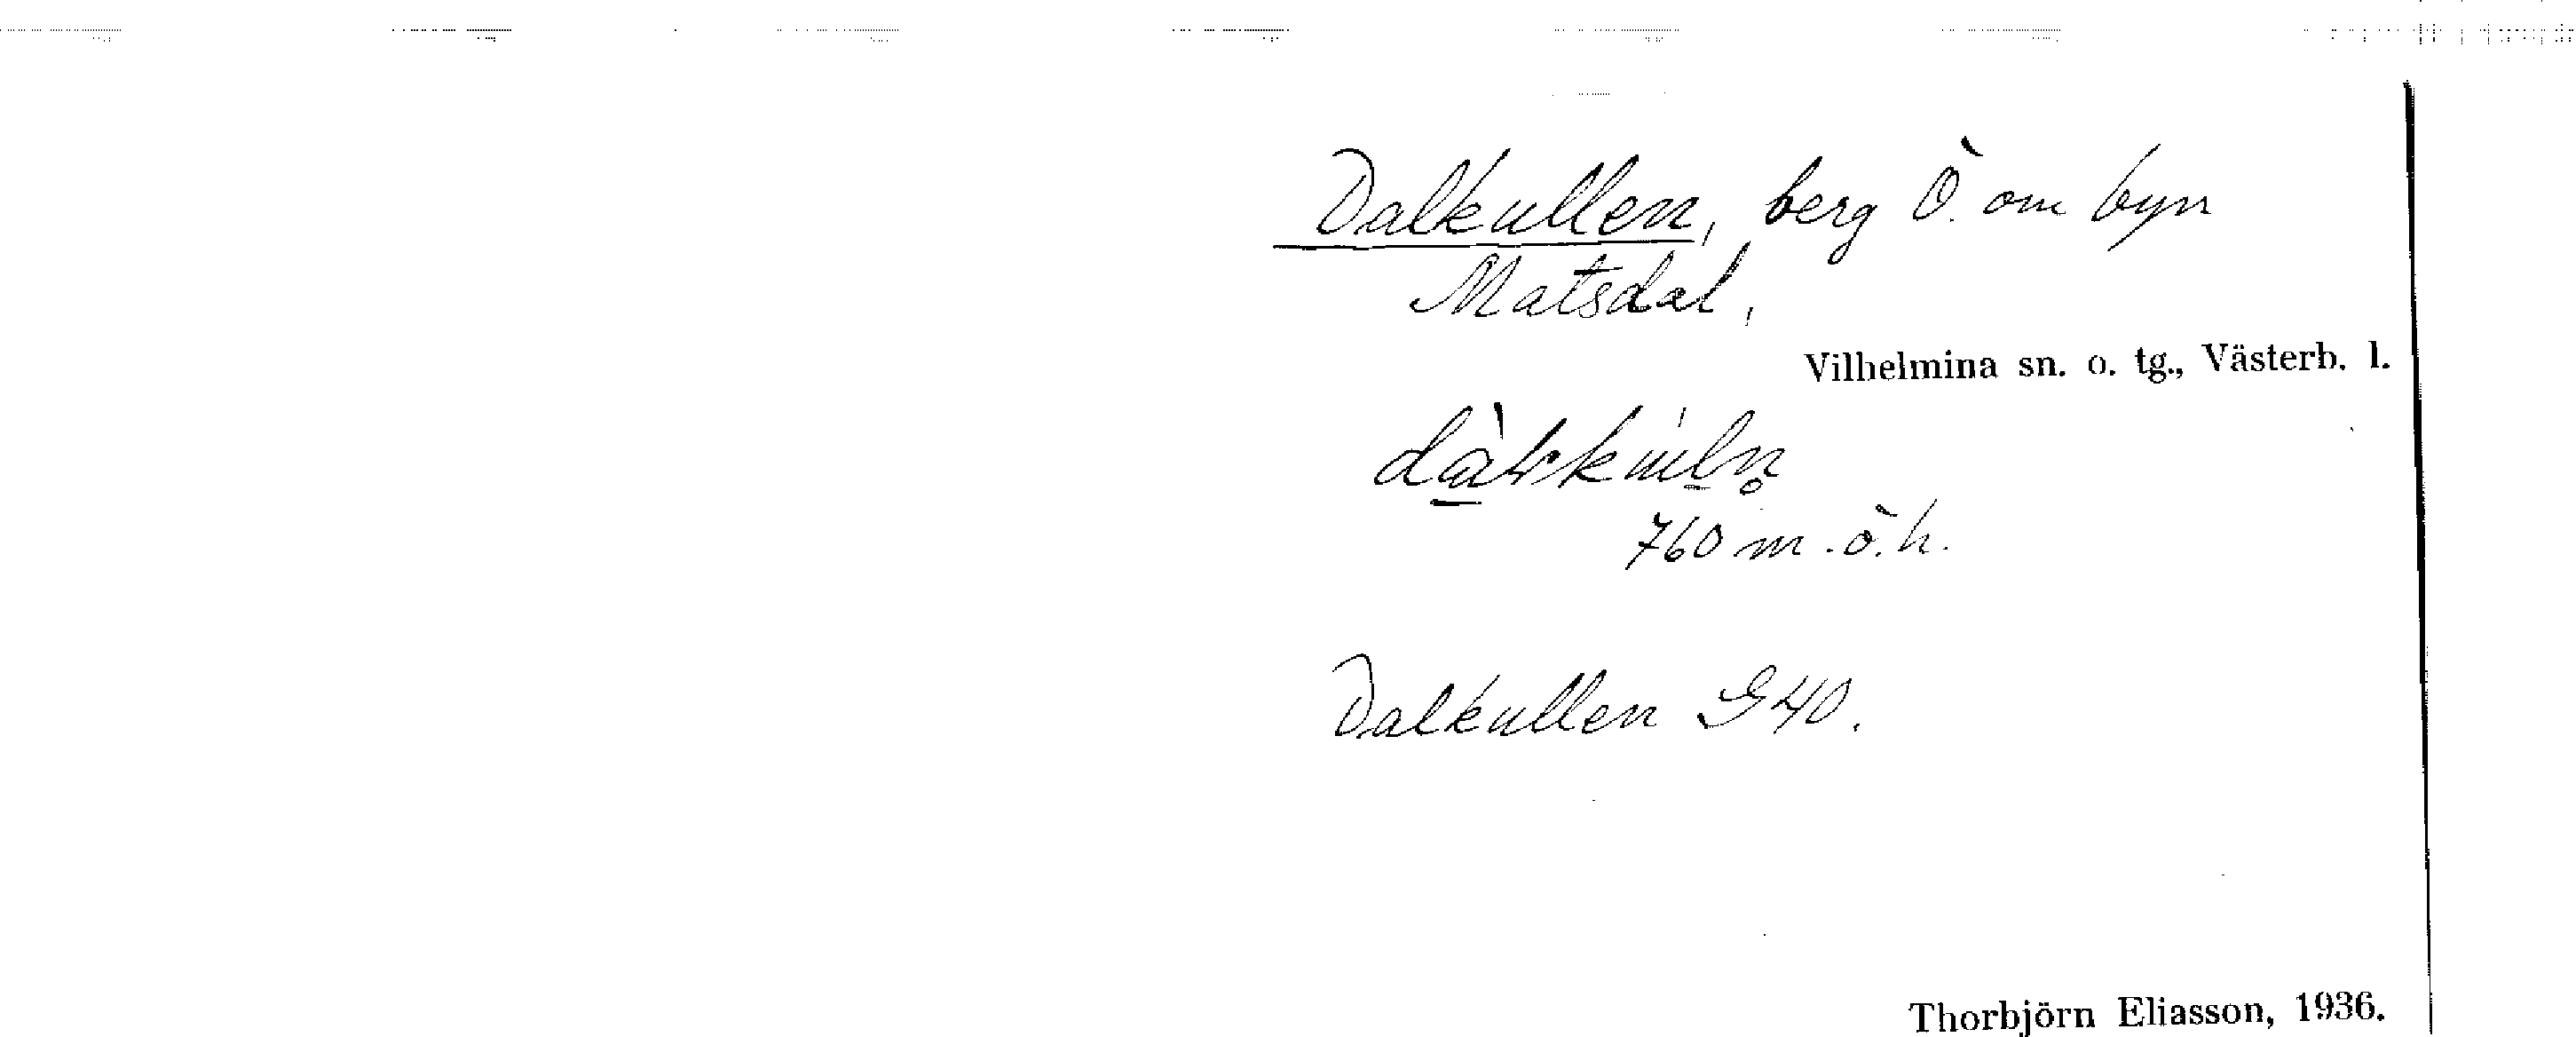 Dalkullen, berg Ö. om byn
Matsdal,
Vilhelmina sn. o. tg., Västerb. l.
760 m. ö. h.
Dalkullen G40.
Thorbjörn Eliasson, 1936.